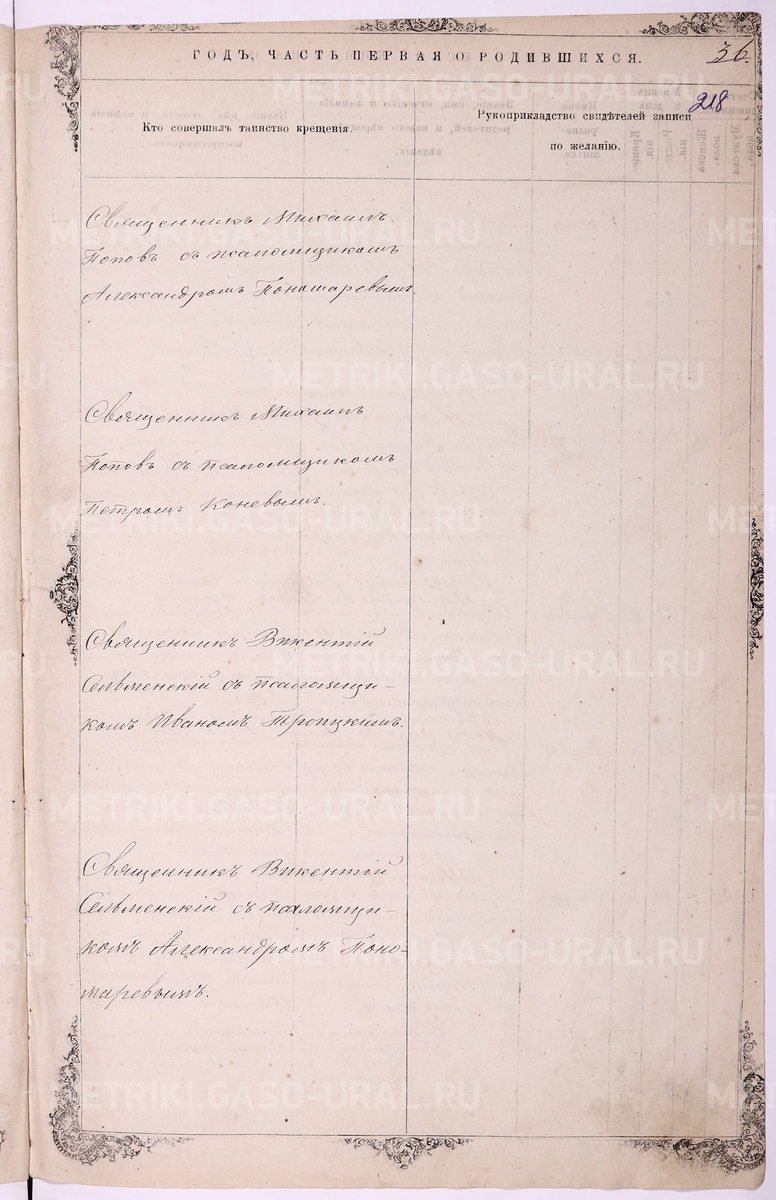 ГОДЪ, ЧАСТЬ ПЕРВАЯ О РОДИВШИХСЯ.
36.
218
Кто совершалъ таинство крещенія
Рукоприкладство свидѣтелей записи
по желанію.
Священникъ Михаилъ
Поповъ съ псаломщикомъ
Александромъ Пономаревымъ.
Священникъ Михаилъ
Поповъ съ псаломщикомъ
Петромъ Коневымъ.
Священникъ Викентій
Сельменскій съ псаломщи-
комъ Иваномъ Троицкимъ.
Священникъ Викентій
Сельменскій съ псаломщи-
комъ Александромъ Поно-
маревымъ.
METRIKI.GASO-URAL.RU